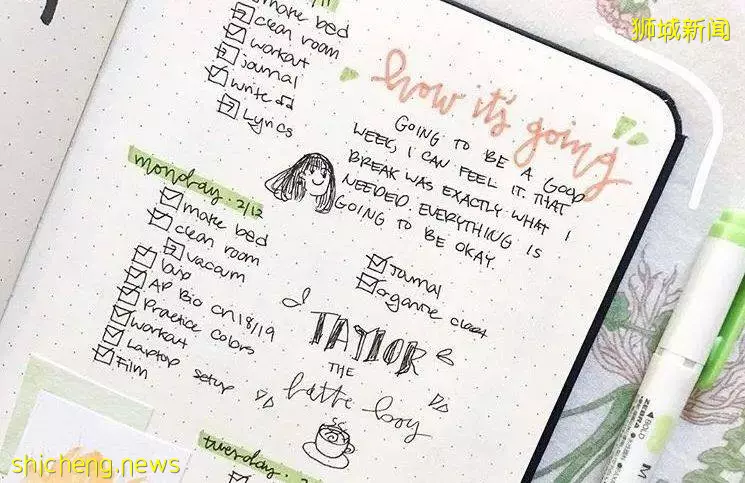 狮城新闻
make bed
clean room
workout
journal
write
Lyrics
how it's going
GOING TO BE A GOOD
WEEK, I CAN FEEL IT. THAT
BREAK WAS EXACTLY WHAT I
NEEDED. EVERYTHING IS
GOING TO BE OKAY.
monday. 2/12
make bed
clean room
vacuum
AP Bio Ch 18/19
Practice Colors
Workout
Laptop Setup
Film
Journal
organize closet
TAYLOR
THE
latte boy
tuesday. 2
shicheng.news
ZEBRA
BOLD
M